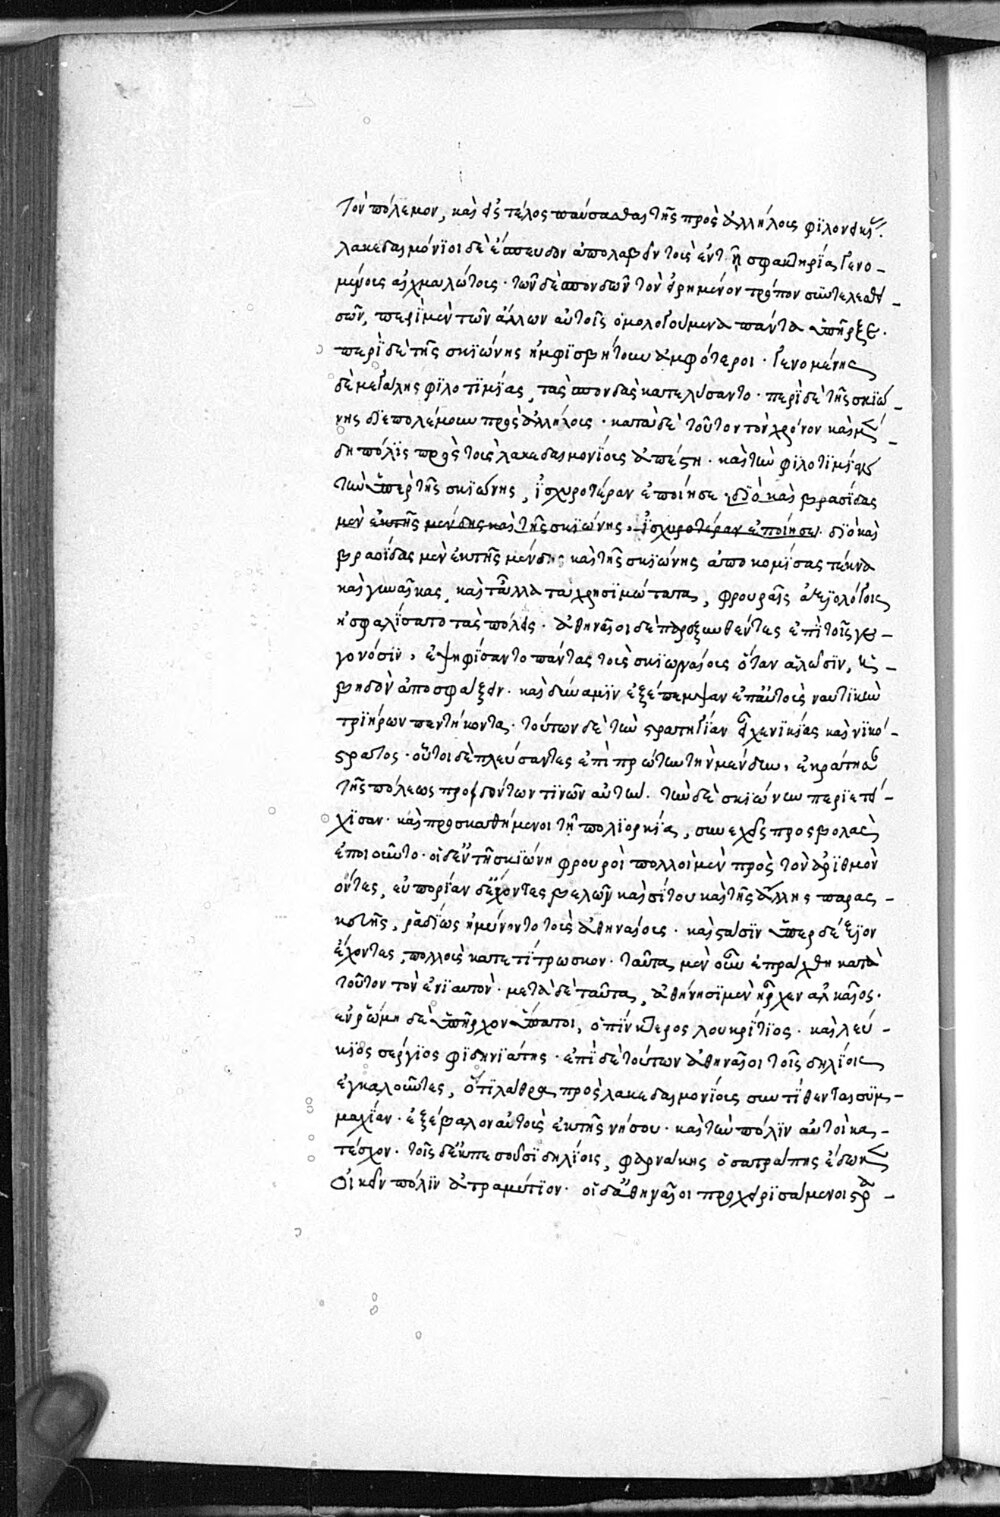 τὸν πόλεμον, καὶ εἰς τέλος παύσασθαι τῆς πρὸς ἀλλήλους φιλονεικίας.
λακεδαιμόνιοι δὲ ἔσπευδον ἀπολαβεῖν τοὺς ἐν τῇ σφακτηρία γενο-
μένους αἰχμαλώτους· τῶν δὲ σπονδῶν τὸν εἰρημένον τρόπον συντελεσθει-
σῶν, περὶ μὲν τῶν ἄλλων αὐτοῖς ὁμολογούμενα πάντα ὑπῆρξε·
περὶ δὲ τῆς σκιώνης ἠμφισβήτουν ἀμφότεροι· γενομένης
δὲ μεγάλης φιλοτιμίας, τὰς σπονδὰς κατελύσαντο· περὶ δὲ τῆς σκιώ-
νης διεπολέμουν πρὸς ἀλλήλους· κατὰ δὲ τοῦτον τὸν χρόνον καὶ μέν-
δη πόλις πρὸς τοὺς λακεδαιμονίους ἀπέστη· καὶ τὴν φιλοτιμίαν
τὴν ὑπὲρ τῆς σκιώνης, ἰσχυροτέραν ἐποίησε διὸ καὶ βρασίδας
μὲν ἐκ τῆς μένδης καὶ τῆς σκιώνης. ἰσχυροτέραν ἐποίησεν. διὸ καὶ
βρασίδας μὲν ἐκ τῆς μένδης καὶ τῆς σκιώνης ἀποκομίσας τέκνα
καὶ γυναῖκας, καὶ τἄλλα τὰ χρησιμώτατα, φρουραῖς ἀξιολόγοις
ἠσφαλίσατο τὰς πόλεις· ἀθηναῖοι δὲ παροξυνθέντες ἐπὶ τοῖς γε-
γονόσιν, ἐψηφίσαντο πάντας τοὺς σκιωναίους ὅταν ἁλῶσιν, ἡ-
βηδὸν ἀποσφάξειν· καὶ δύναμιν ἐξέπεμψαν ἐπ' αὐτοὺς ναυτικὴν
τριήρων πεντήκοντα· τούτων δὲ τὴν στρατηγίαν εἶχε νικίας καὶ νικό-
στρατος· οὗτοι δὲ πλεύσαντες ἐπὶ πρώτην τὴν μένδην, ἐκράτησαν
τῆς πόλεως προδόντων τινῶν αὐτήν. τὴν δὲ σκιώνην περιετεί-
χισαν· καὶ προσκαθήμενοι τῇ πολιορκία, συνεχεῖς προσβολὰς
ἐποιοῦντο· οἱ δ' ἐν τῇ σκιώνη φρουροὶ πολλοὶ μὲν πρὸς τὸν ἀριθμὸν
ὄντες, εὐπορίαν δ' ἔχοντες βελῶν καὶ σίτου καὶ τῆς ἄλλης παρασ-
κευῆς, ῥαδίως ἠμύνοντο τοὺς ἀθηναίους· καὶ στάσιν ὑπερδέξιον
ἔχοντες, πολλοὺς κατετίτρωσκον· ταῦτα μὲν οὖν ἐπράχθη κατὰ
τοῦτον τὸν ἐνιαυτόν· μετὰ δὲ ταῦτα, ἀθήνησι μὲν ἦρχεν ἀλκαῖος·
ἐν ῥώμη δὲ ὑπῆρχον ὕπατοι, ὀπίκτερος λουκρίτιος· καὶ λεύ-
κιος σεργίος φιδηνιάτης· ἐπὶ δὲ τούτων ἀθηναῖοι τοῖς δηλίοις
ἐγκαλοῦντες, ὅτι λάθρα πρὸς λακεδαιμονίους συντίθενται συμ-
μαχίαν· ἐξέβαλον αὐτοὺς ἐκ τῆς νήσου· καὶ τὴν πόλιν αὐτοὶ κα-
τέσχον· τοῖς δ' ἐκπεσοῦσι δηλίοις, φαρνάκης ὁ σατράπης ἔδωκεν
οἰκεῖν πόλιν ἀτραμύτιον· οἱ δ' ἀθηναῖοι προχειρισάμενοι στρα-